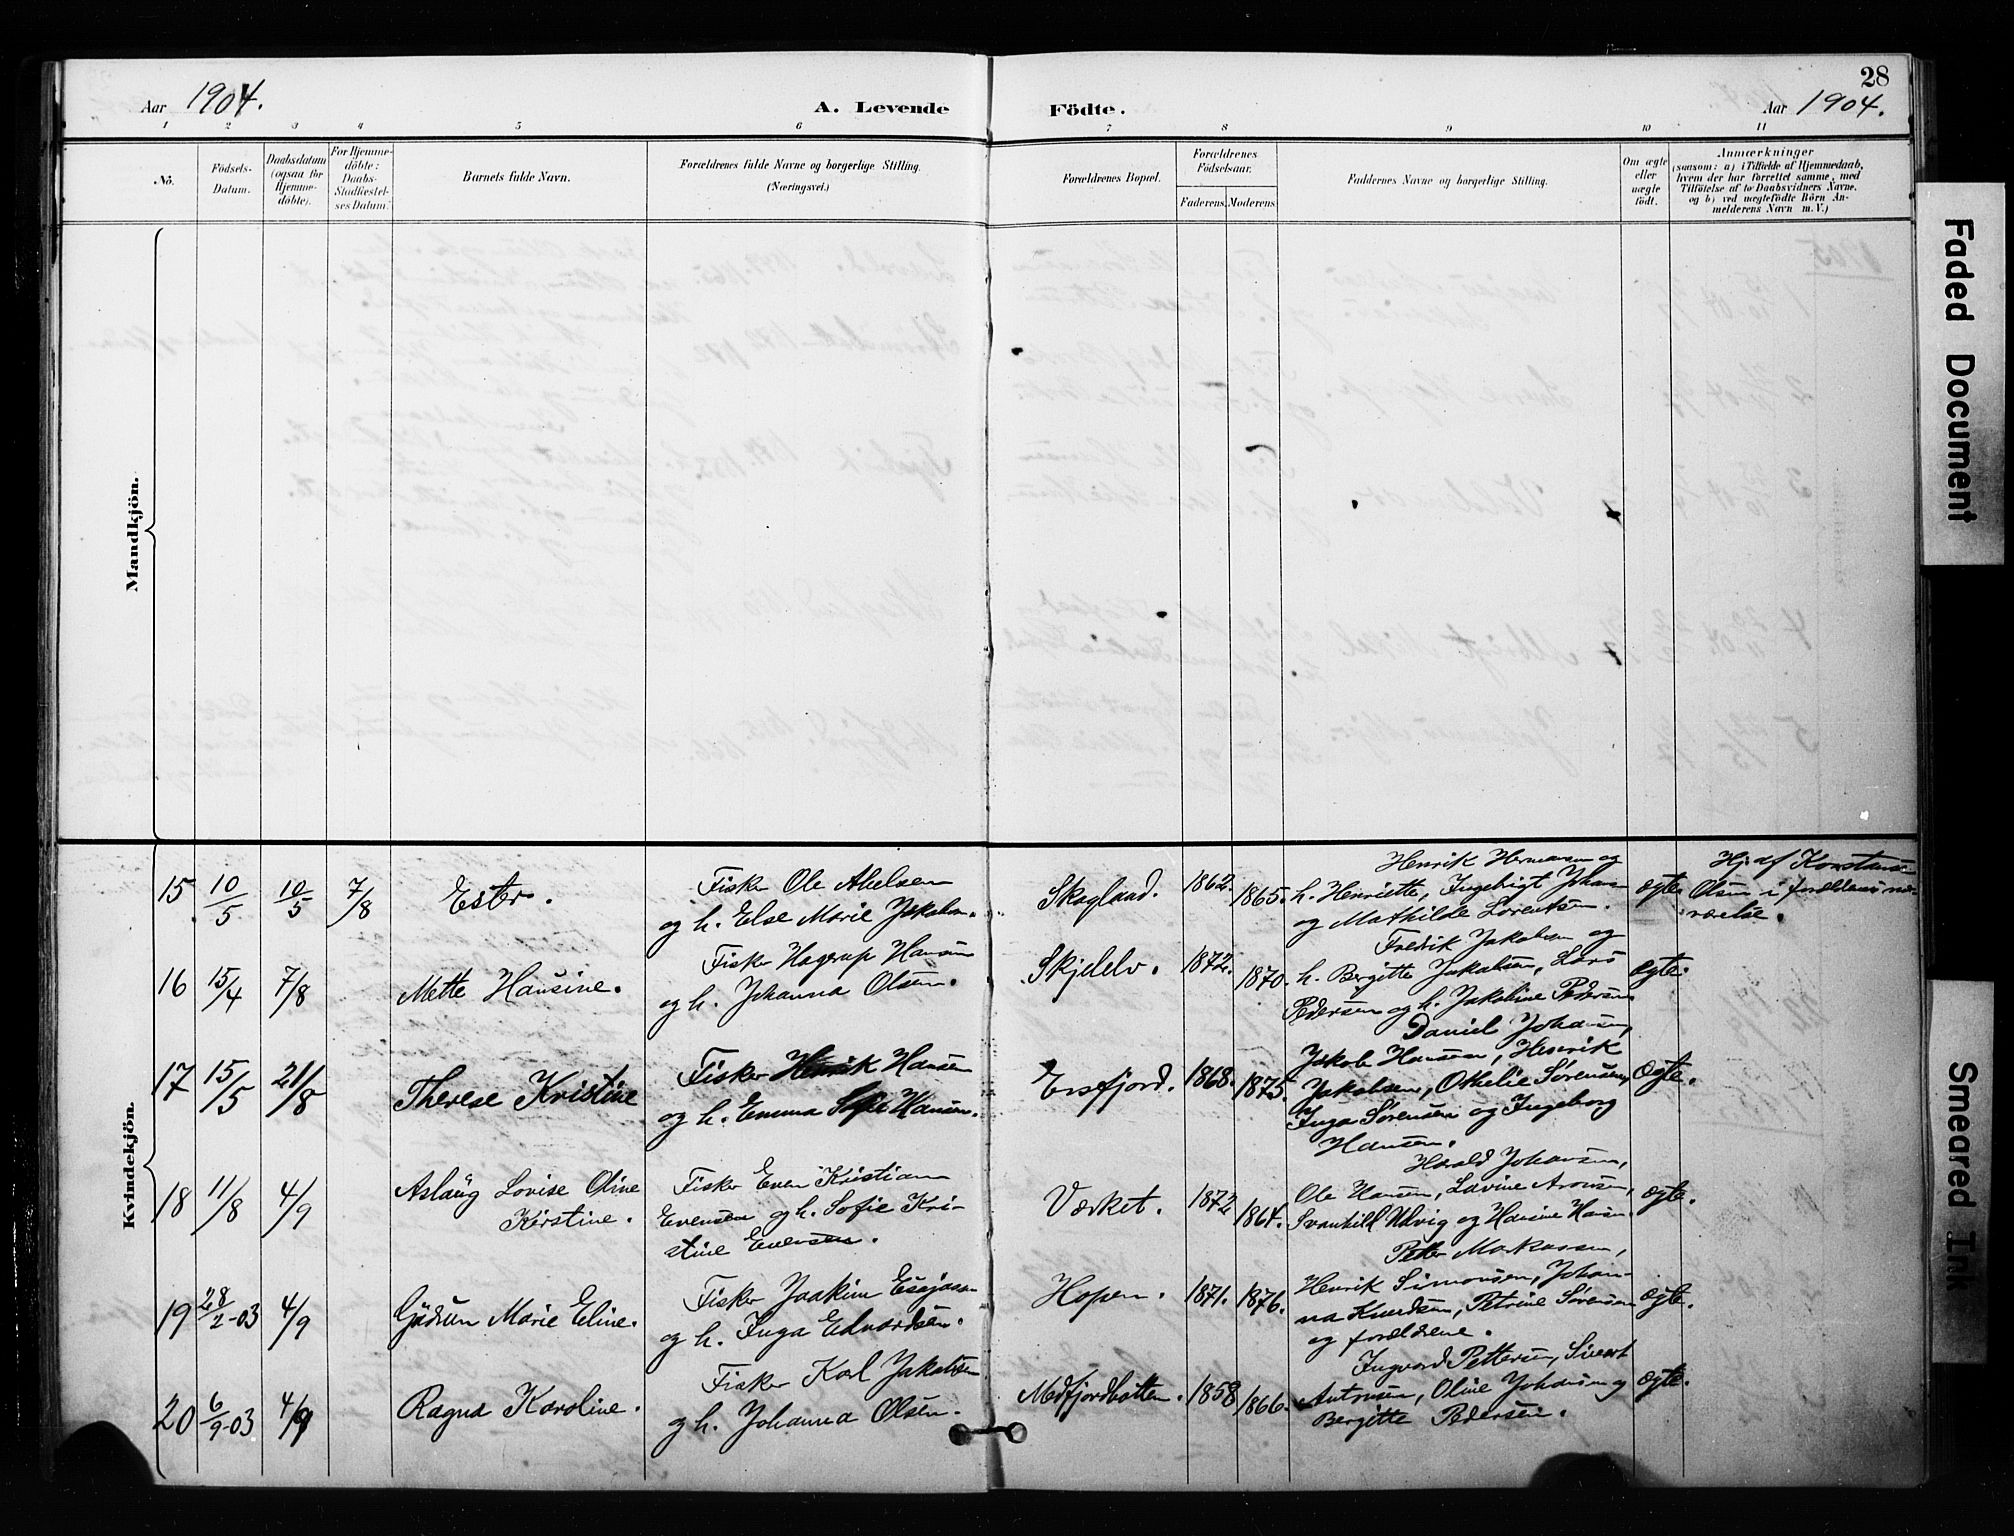 28
Aar 1904.
A. Levende Födte.
Aar 1904.
1 2 3 4 5 6 7 8 9 10 11
No.
Födsels-
Datum.
Daabsdatum
(ogsaa for
Hjemme-
döbte).
For Hjemme-
döbte:
Daabs-
Stadfæstel-
ses Datum.
Barnets fulde Navn.
Forældrenes fulde Navne og borgerlige Stilling.
(Næringsvei.)
Forældrenes Bopæl.
Forældrenes
Födselsaar.
Faderens. Moderens.
Faddernes Navne og borgerlige Stilling.
Om ægte
eller
uægte
födt.
Anmærkninger
(saasom: a) i Tilfælde af Hjemmedaab,
hvem der har forrettet samme, med
Tilföielse af to Daabsvidners Navne,
og b) ved uægtefödte Börn An-
melderens Navn m. V.)
Mandkjön.
Kvindekjön.
15 10/5 10/5 7/8
Ester.
Fisker Ole Abelsen
og h. Else Marie Jakobsen.
Skogland.
1862. 1865.
Henrik Hermansen og
h. Henriette, Ingebrigt Johan
og Mathilde Lorentsen.
ægte
Hj. af Konstanse
Olsen i forældrenes nær-
værelse.
16 15/4 7/8
Mette Hansine.
Fisker Hagerup Hansen
og h. Johanna Olsen.
Skjelelv.
1872. 1870.
Fredrik Jakobsen og
h. Bergitte Jakobsen, Lars
Pedersen og h. Jakobine Pedersen
ægte.
17 15/5 21/8
Therese Kristine
Fisker Henrik Hansen
og h. Emma Sofie Hansen.
Ersfjord.
1868. 1875.
Daniel Johansen,
Jakob Hansen, Henrik
Jakobsen, Othelie Sørensen,
Inga Sørensen og Ingeborg
Hansen.
ægte.
18 11/8 4/9
Aslaug Lovise Oline
Kirstine.
Fisker Even Kristian
Evensen og h. Sofie Kri-
stine Evensen.
Værket.
1872 1864.
Harald Johansen,
Ole Hansen, Lovine Aronsen,
Svanhild Udvig og Hansine Hansen.
ægte.
19 28/2-03 4/9
Gudrun Marie Eline.
Fisker Joakim Esajasen
og h. Inga Edvardsen.
Hopen.
1871. 1876.
Peter Markussen,
Henrik Simonsen, Johan-
na Knudsen, Petrine Sørensen
og forældrene.
ægte.
20 6/9-03 4/9
Ragna Karoline.
Fisker Karl Jakobsen
og h. Johanna Olsen.
Medfjordbotten.
1858 1866.
Ingvard Pettersen, Sivert
Antonsen, Oline Johansen og
Bergitte Pedersen.
ægte.
Faded Document
Smeared Ink